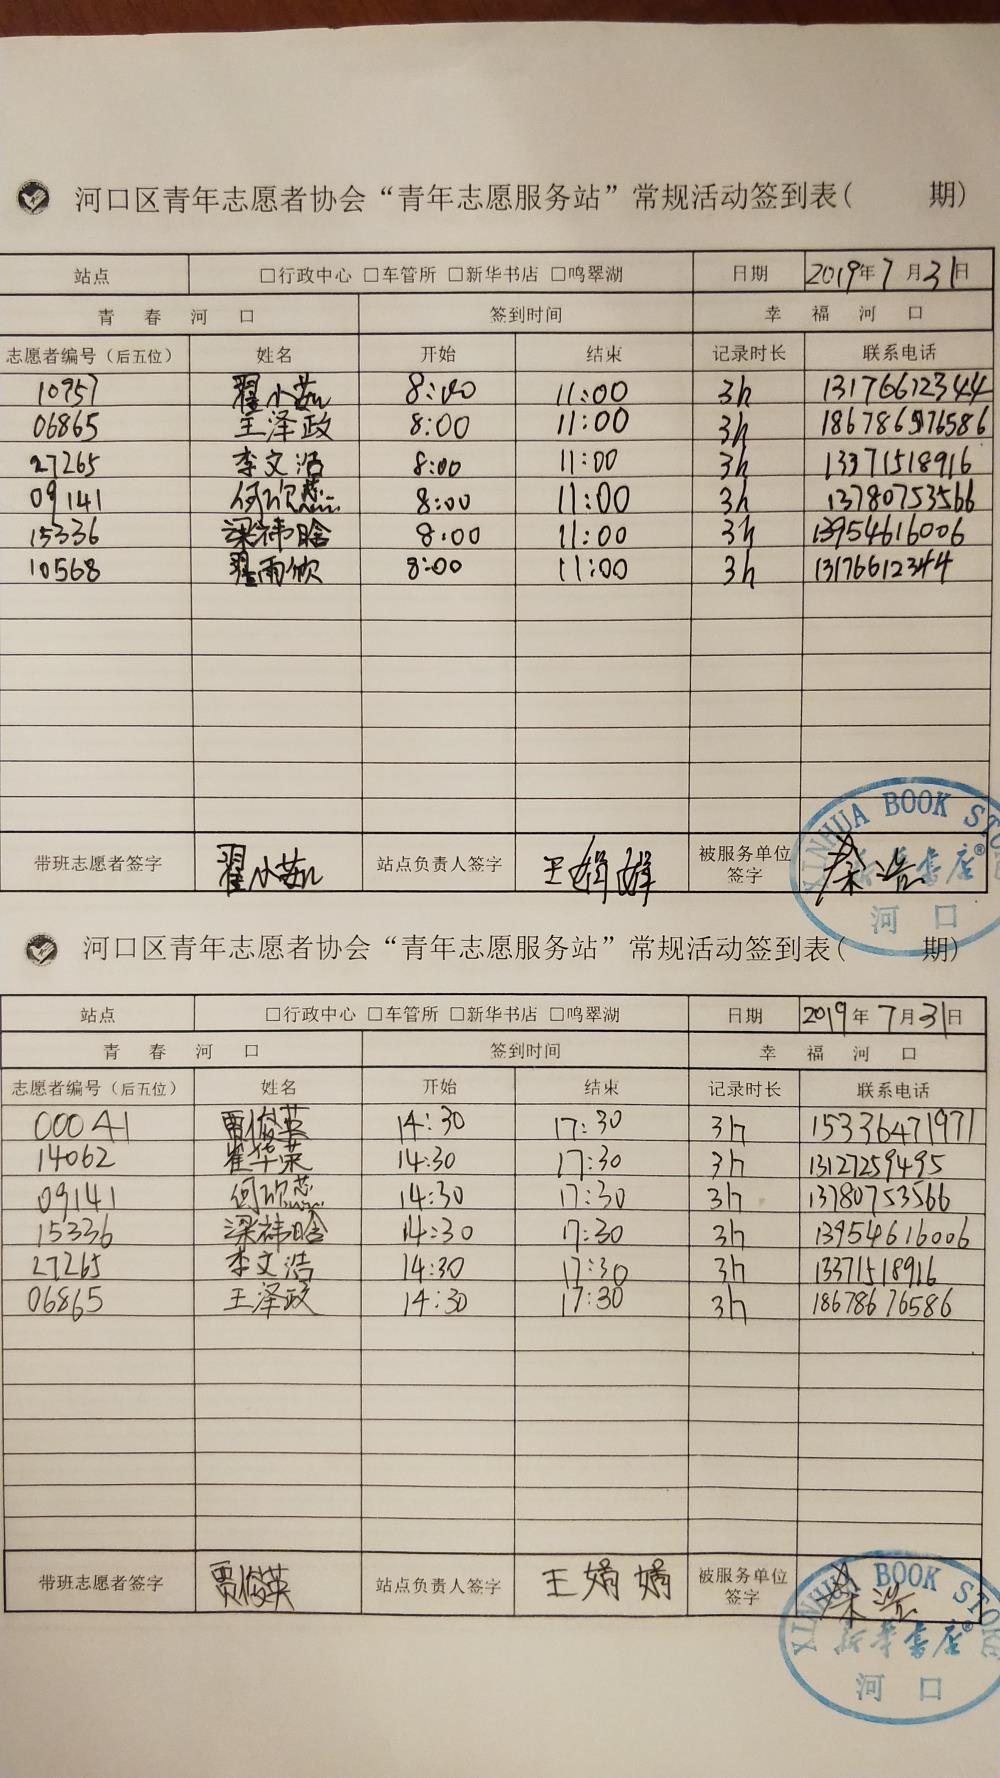 河口区青年志愿者协会“青年志愿服务站”常规活动签到表( 期)
站点 □行政中心 □车管所 □新华书店 □鸣翠湖 日期 2019年7月31日
青春河口 签到时间 幸福河口
志愿者编号（后五位） 姓名 开始 结束 记录时长 联系电话
10957 翟小茹 8:00 11:00 3h 13176612344
06865 王泽政 8:00 11:00 3h 18678676586
27265 李文浩 8:00 11:00 3h 13371518916
09141 何欣 8:00 11:00 3h 13780753566
15336 梁祎晗 8:00 11:00 3h 13954616006
10568 翟雨欣 8:00 11:00 3h 13176612344
带班志愿者签字 翟小茹 站点负责人签字 王娟娟 被服务单位签字 秦浩
XINHUA BOOK STO
新华书店®
河口
河口区青年志愿者协会“青年志愿服务站”常规活动签到表( 期)
站点 □行政中心 □车管所 □新华书店 □鸣翠湖 日期 2019年7月31日
青春河口 签到时间 幸福河口
志愿者编号（后五位） 姓名 开始 结束 记录时长 联系电话
00041 贾俊英 14:30 17:30 3h 15336471971
14062 崔华荣 14:30 17:30 3h 13127259495
09141 何欣 14:30 17:30 3h 13780753566
15336 梁祎晗 14:30 17:30 3h 13954616006
27265 李文浩 14:30 17:30 3h 13371518916
06865 王泽政 14:30 17:30 3h 18678676586
带班志愿者签字 贾俊英 站点负责人签字 王娟娟 被服务单位签字 秦浩
XINHUA BOOK STORE
新华书店®
河口